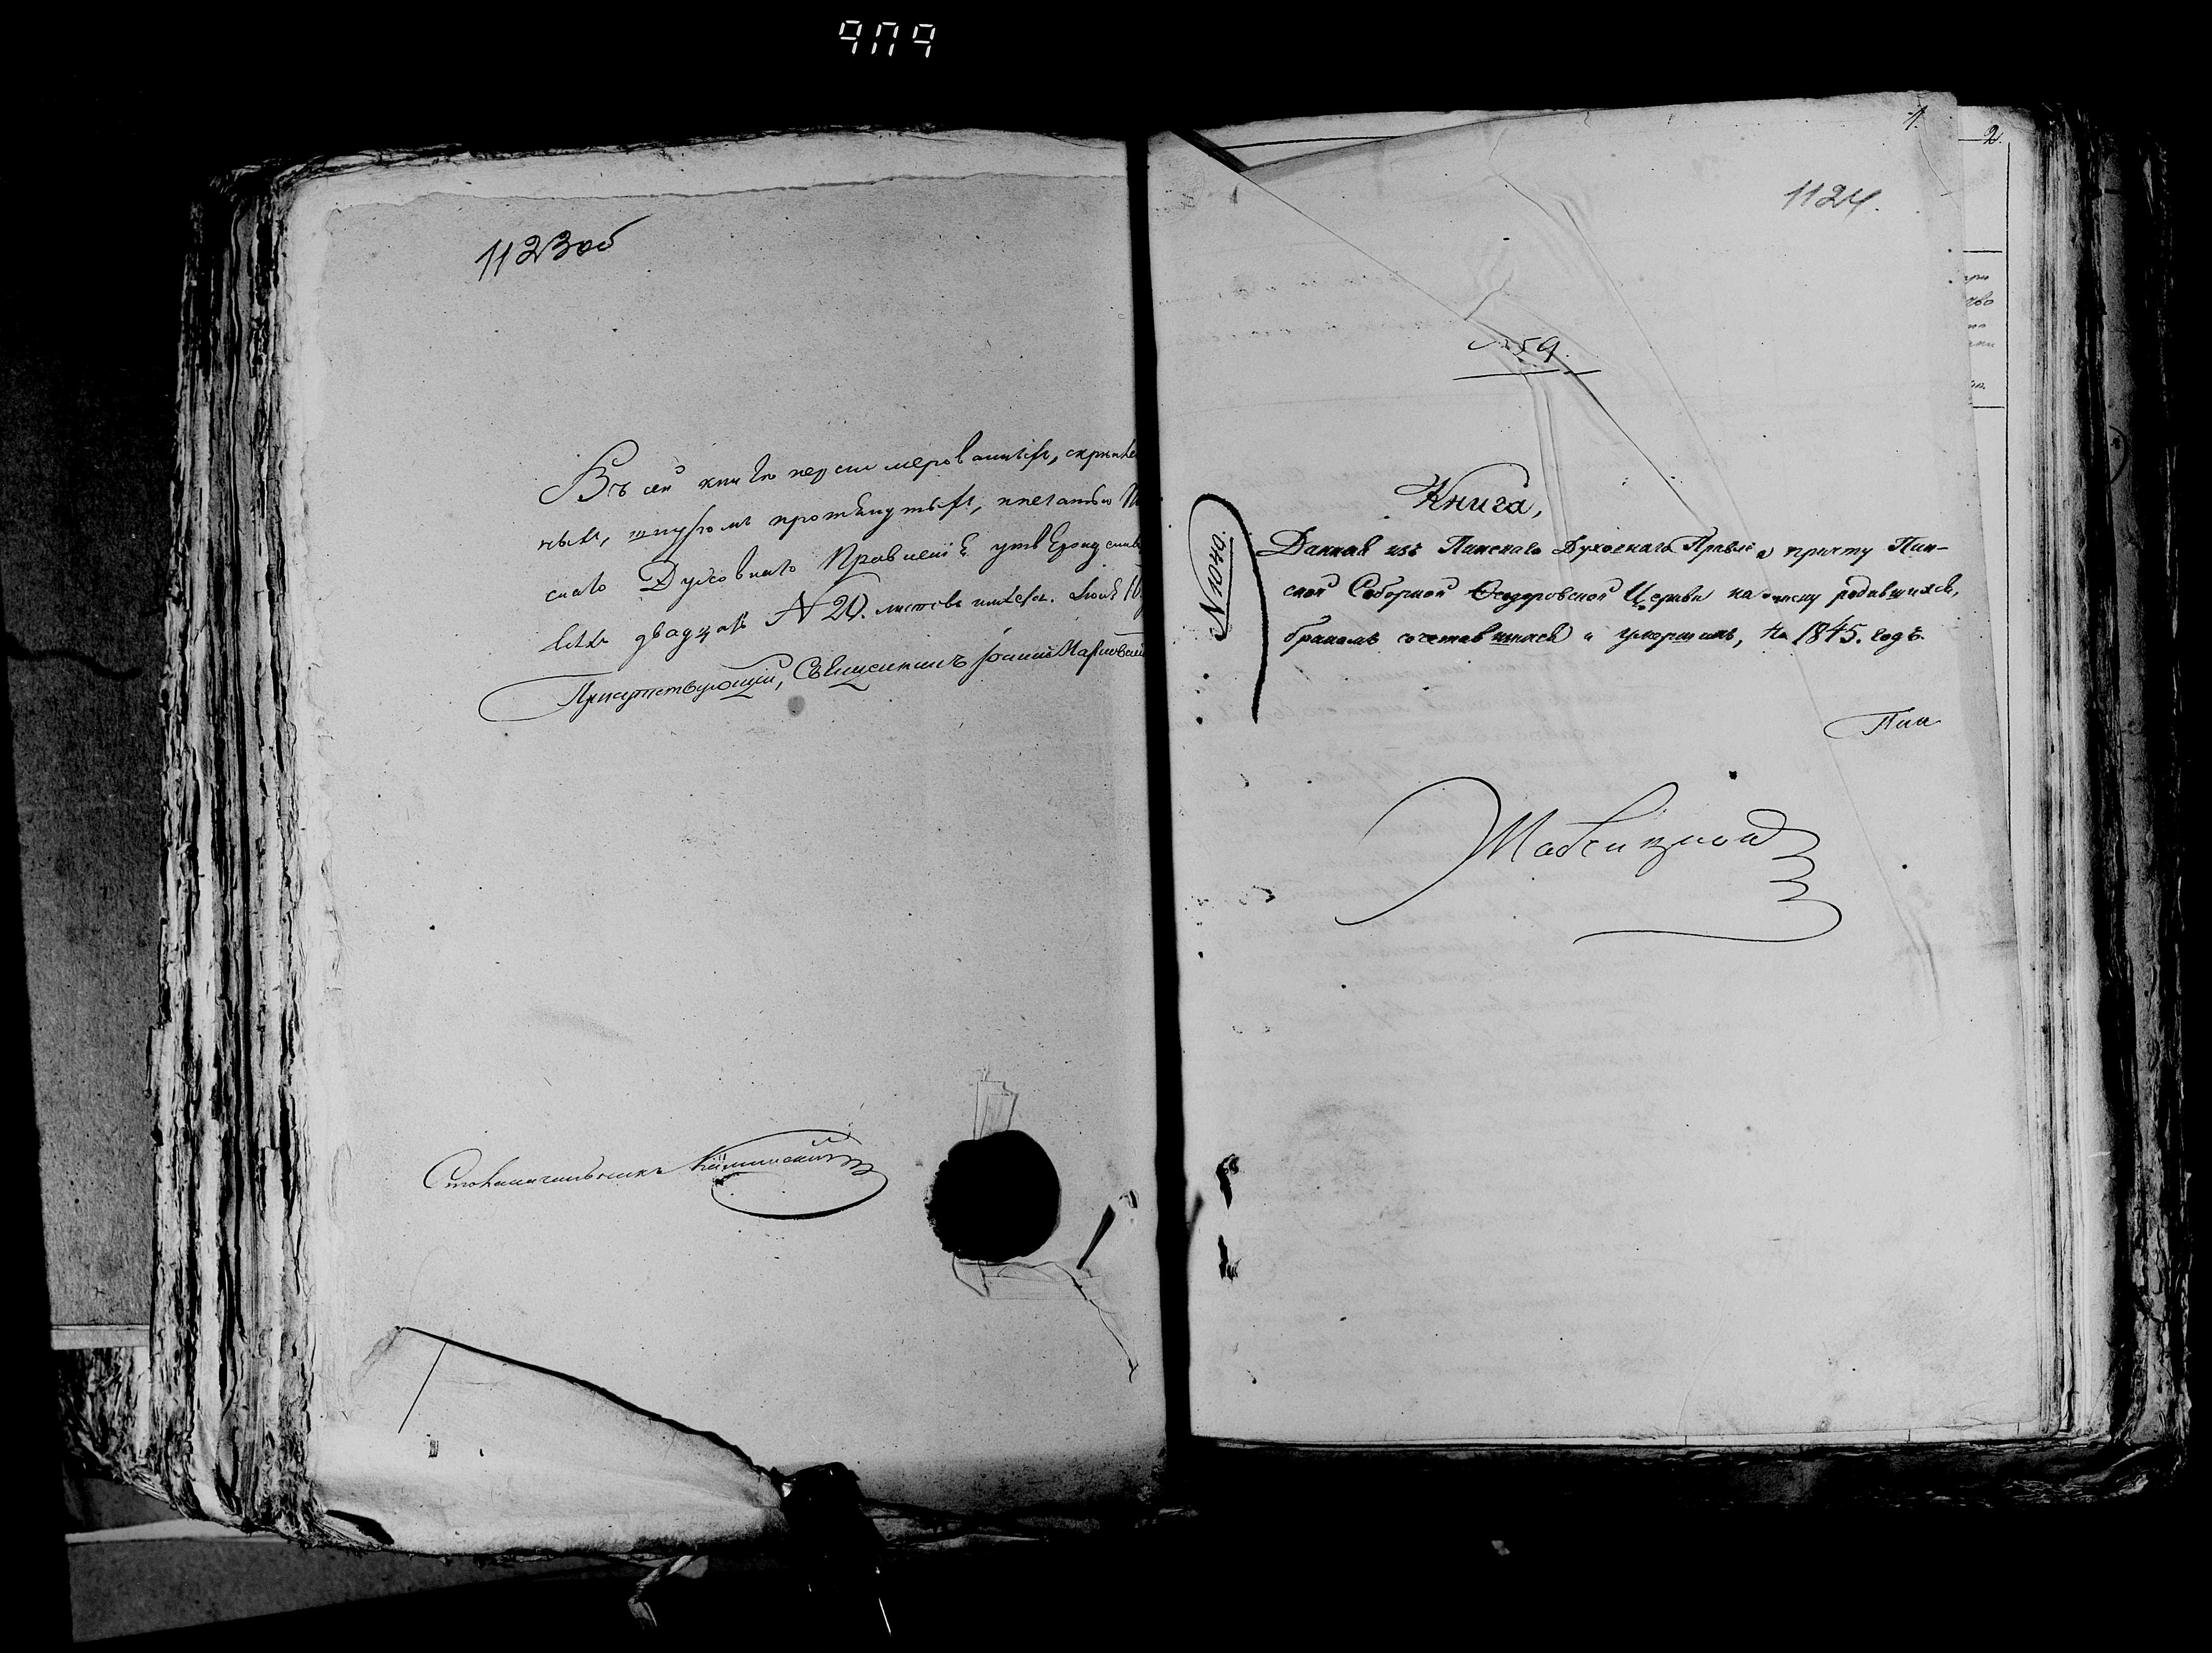 909
1123об
Въ сей книгѣ перенумерованныхъ, скрѣплен
ныхъ, шнуромъ протянутыхъ, печатью Пи
скаго Духовнаго Правленія утвержденны
всѣхъ двадцать N 20. листовъ имѣетъ.
Присутствующій, Священникъ Іоаннъ
Столоначальникъ
1.
2.
1124.
№ 59.
N 1040.
Книга,
Данная изъ Пинскаго Духовнаго Правленія причту Пин-
ской Соборной Феодоровской Церкви на записку родившихся,
бракомъ сочетавшихся и умершихъ, на 1845. годъ.
Пин